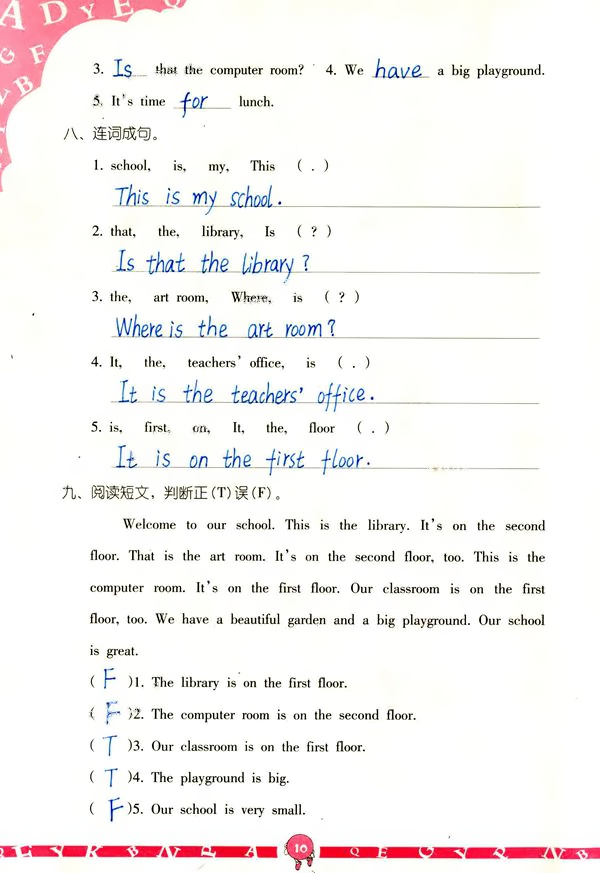 A D Y E
3. Is that the computer room? 4. We have a big playground.
5. It's time for lunch.
八、连词成句。
1. school, is, my, This ( . )
This is my school.
2. that, the, library, Is ( ? )
Is that the library?
3. the, art room, Where, is ( ? )
Where is the art room?
4. It, the, teachers' office, is ( . )
It is the teachers' office.
5. is, first, on, It, the, floor ( . )
It is on the first floor.
九、阅读短文，判断正(T)误(F)。
Welcome to our school. This is the library. It's on the second
floor. That is the art room. It's on the second floor, too. This is the
computer room. It's on the first floor. Our classroom is on the first
floor, too. We have a beautiful garden and a big playground. Our school
is great.
( F )1. The library is on the first floor.
( F )2. The computer room is on the second floor.
( T )3. Our classroom is on the first floor.
( T )4. The playground is big.
( F )5. Our school is very small.
10